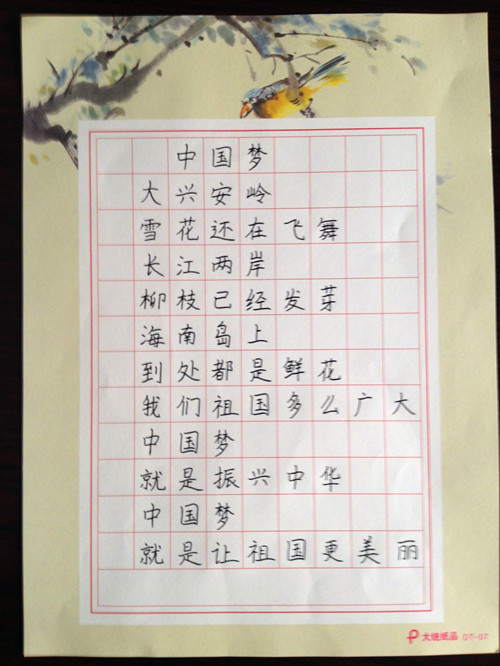 中国梦
大兴安岭
雪花还在飞舞
长江两岸
柳枝已经发芽
海南岛上
到处都是鲜花
我们祖国多么广大
中国梦
就是振兴中华
中国梦
就是让祖国更美丽
大进纸品 DT-07